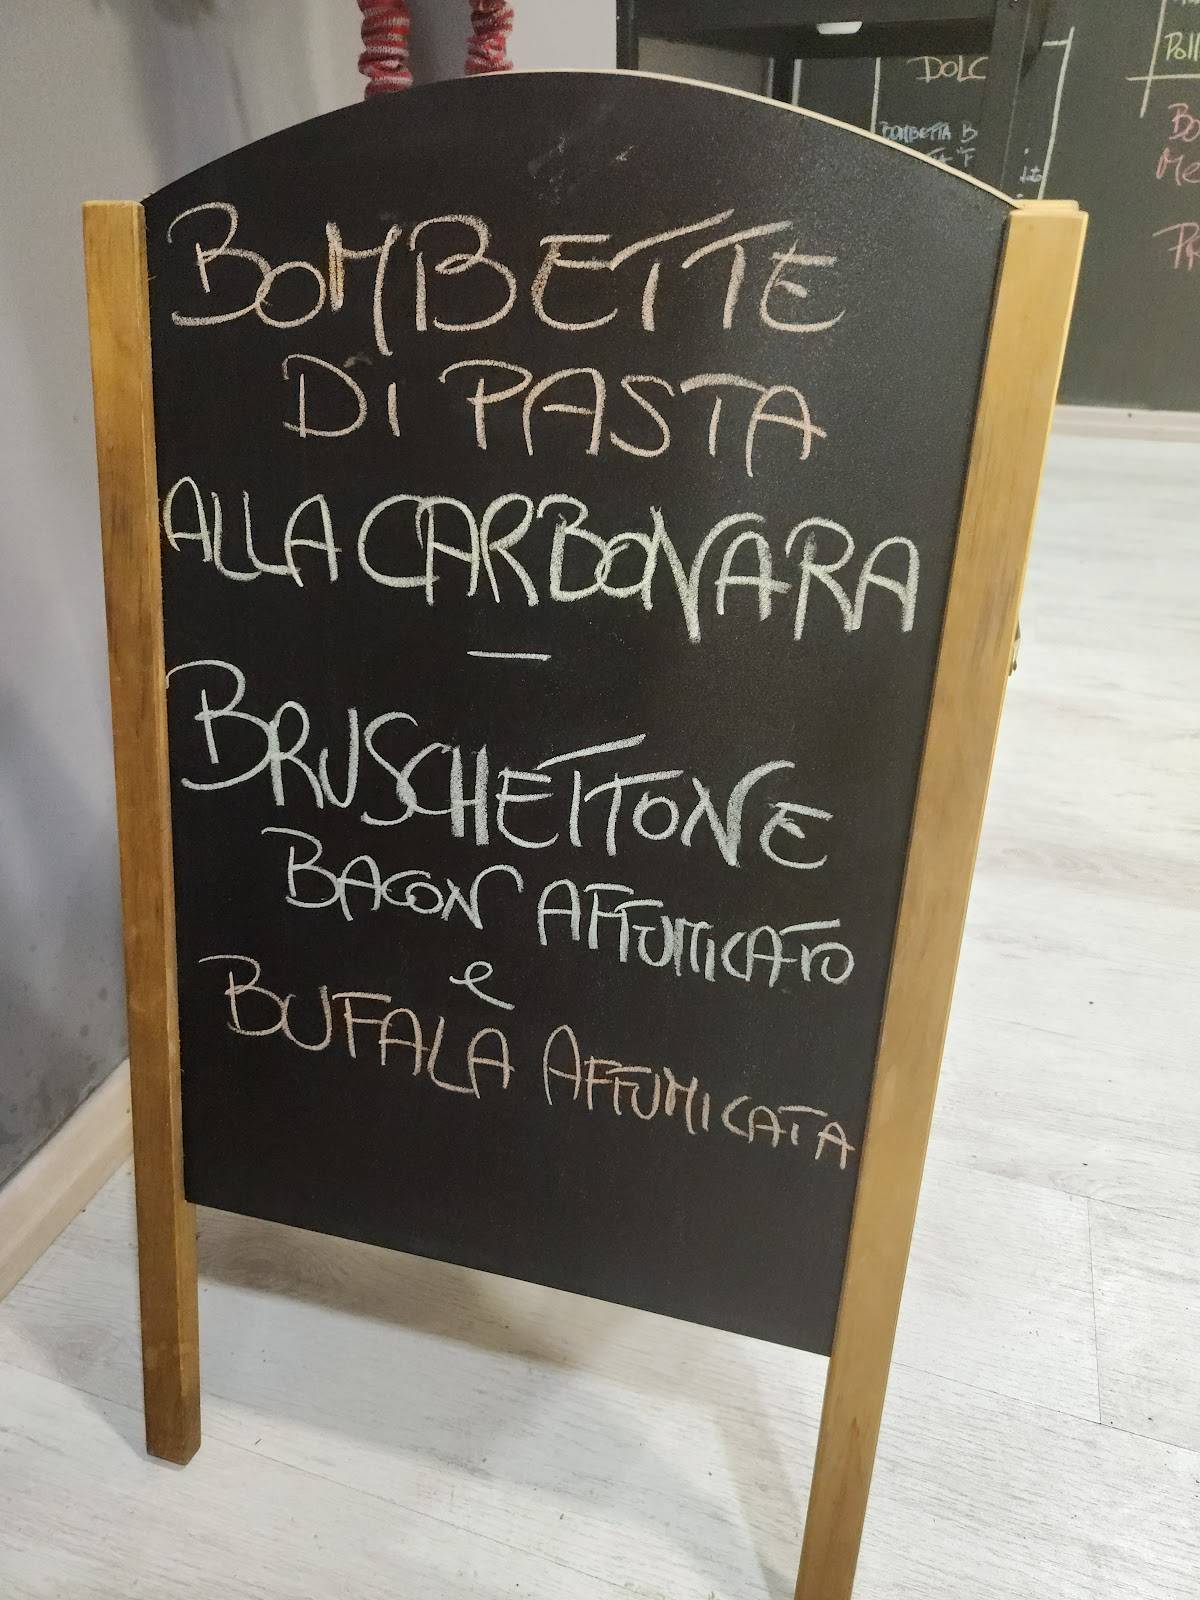 BOMBETTE
DI PASTA
ALLA CARBONARA
—
BRUSCHETTONE
BACON AFFUMICATO
e
BUFALA AFFUMICATA
DOLC
BOMBETTA B
Poll
Bo
Me
PR